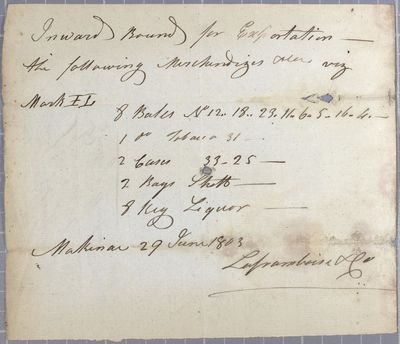 Inward Bound for Exportation —
the following Merchandizes viz
Mark FL
8 Bales No 12. 18. 23. 11. 6. 5. 16. 4. —
1 do Tobacco 31 —
2 Cases 33-25 —
2 Bags Shott —
8 Keg Liquor —
Makinac 29 June 1803
Laframboise & Co